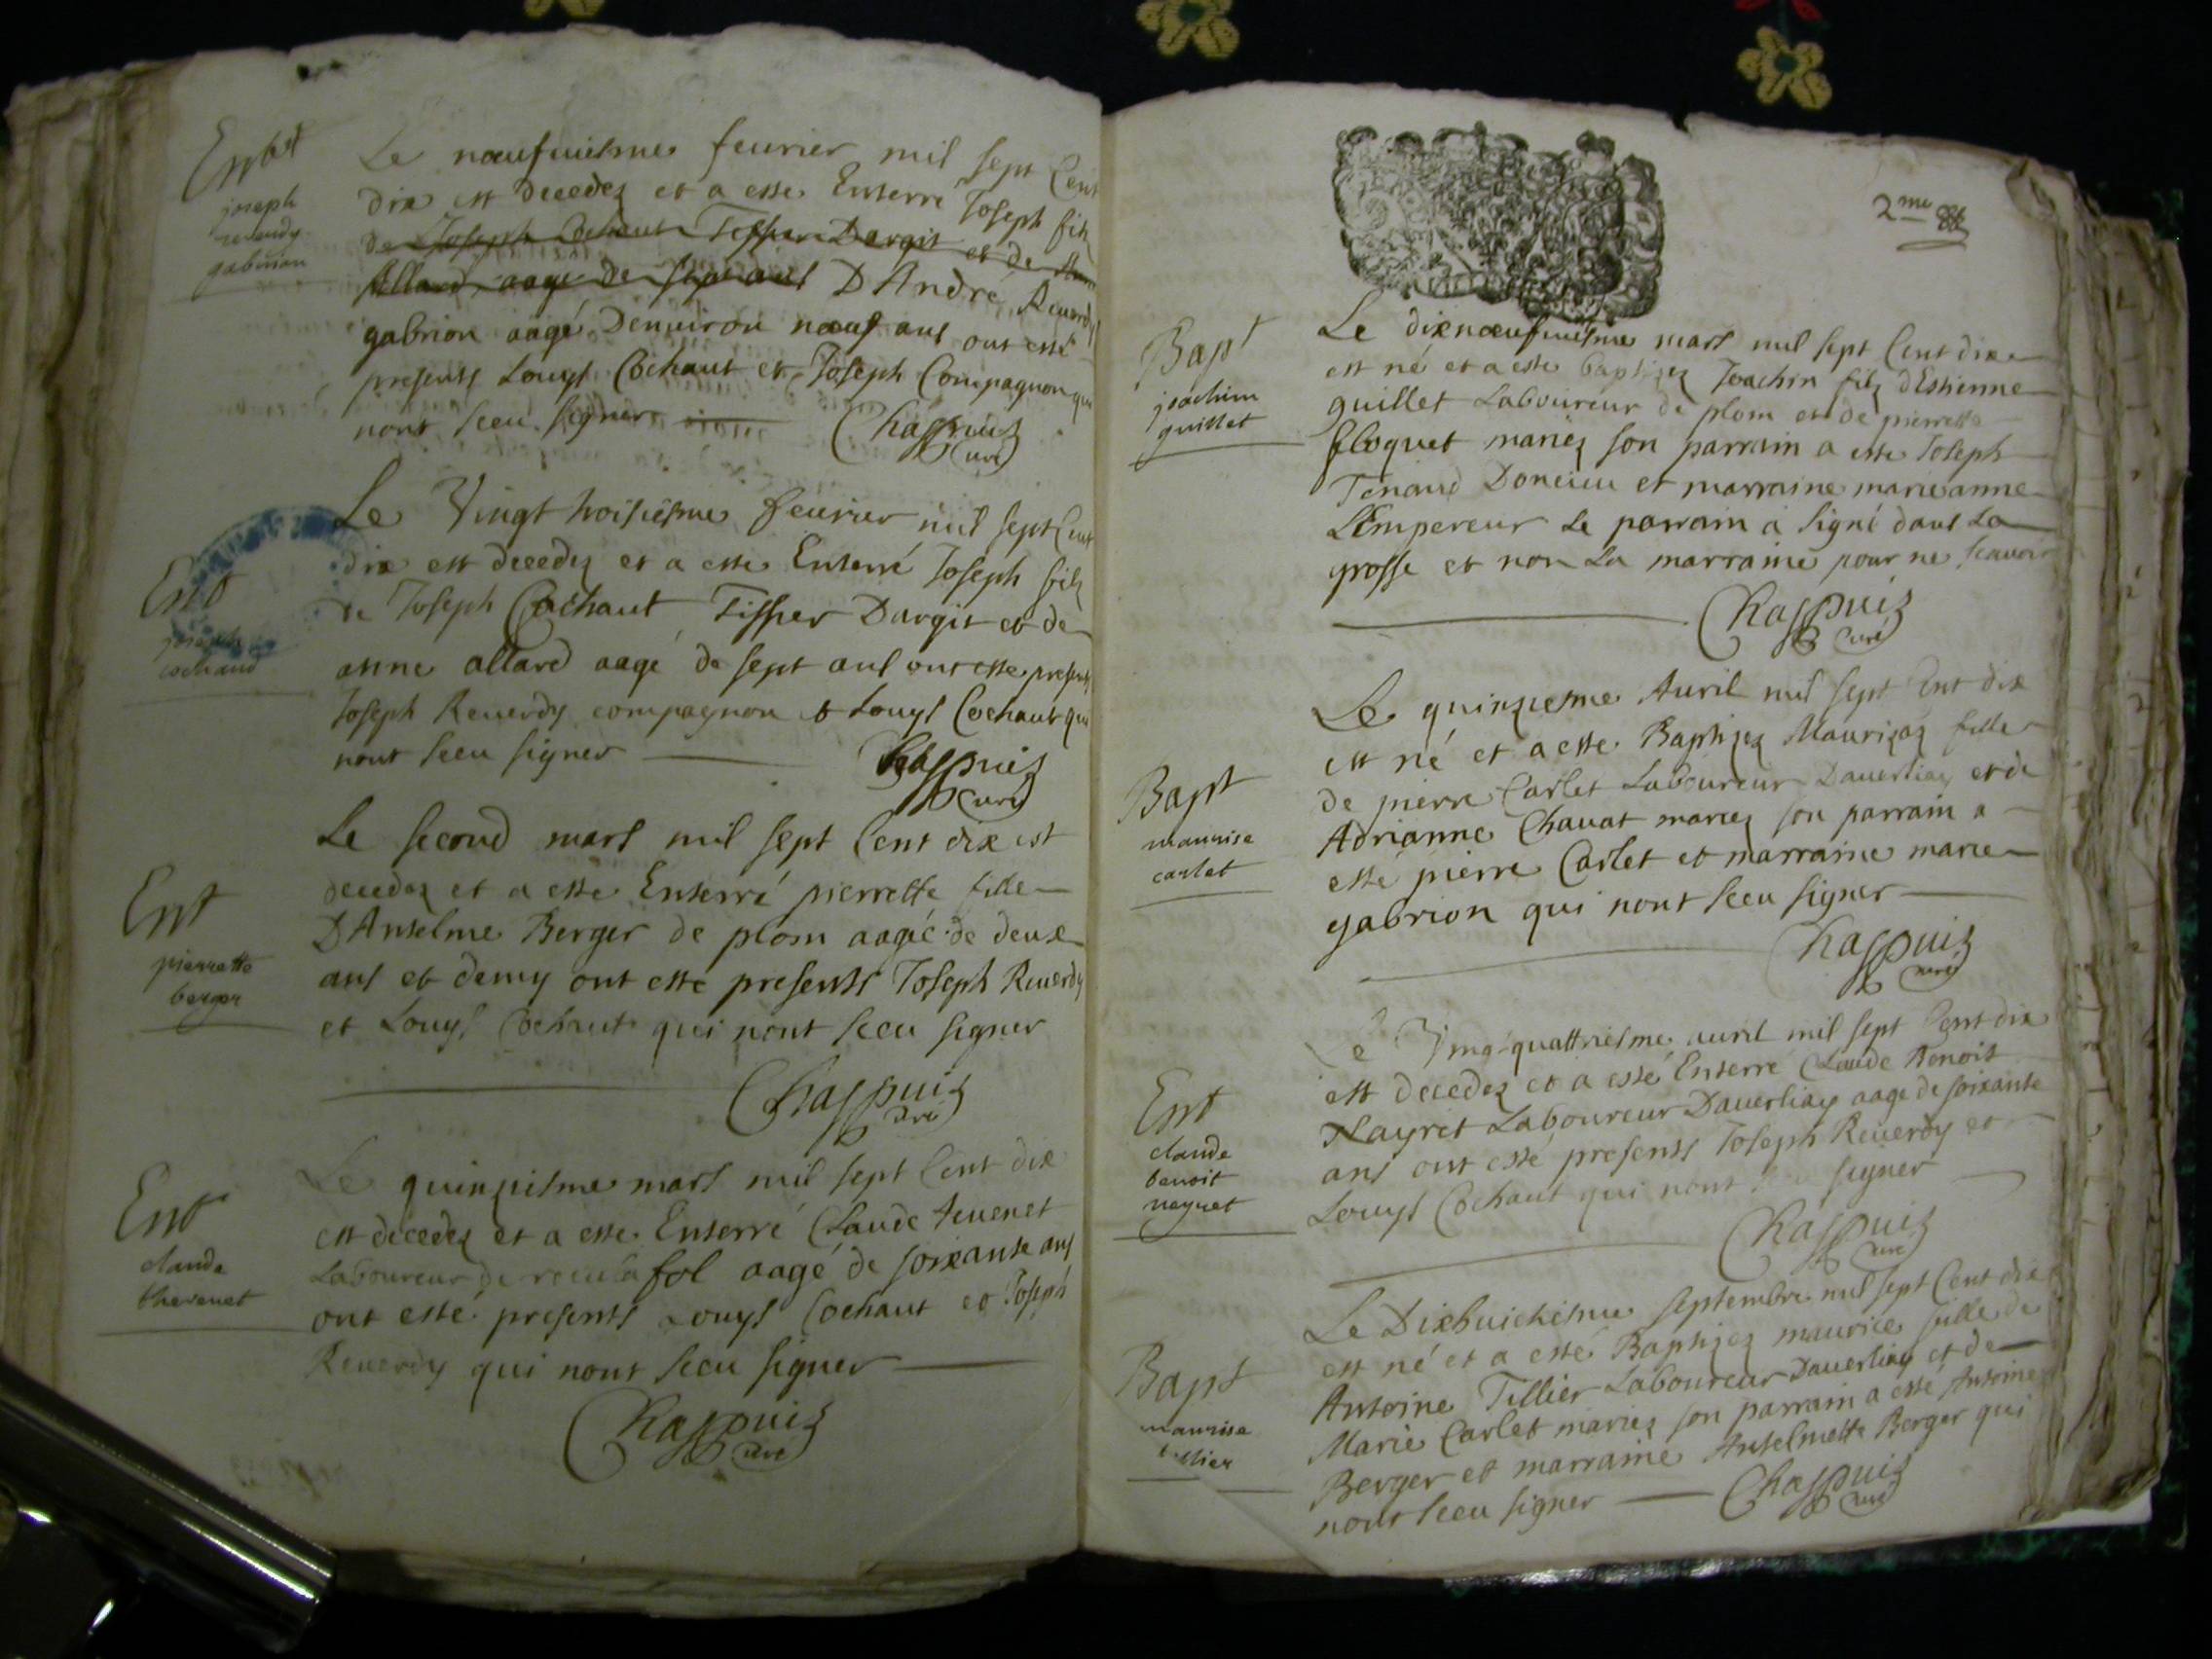 Entt
joseph
reverdy
gabrion
Le nœufuiesme feurier mil sept Cent
dix est decedez et a este Enterré Joseph filz
de Joseph Cochaut Tissier Dargit et de
Allard aagé de sept ans D André Reuerdy
gabrion aagé Denuiron nœuf ans ont esté
presents Louys Cochaut et Joseph Compagnon qui
nont sceu signer
Chappuis
Curé
Ent
joseph
cochaud
Le Vingt troisiesme feurier mil sept Cent
dix est decedez et a este Enterré Joseph filz
de Joseph Cochaut Tissier Dargit et de
anne allard aagé de sept ans ont este presents
Joseph Reuerdy compagnon & Louys Cochaut qui
nont sceu signer
Chappuis
Curé
Ent
pierrette
berger
Le second mars mil sept Cent dix est
decedez et a este Enterré pierrette fille
D Anselme Berger de plom aagé de deux
ans et demy ont esté presents Joseph Reuerdy
et Louys Cochaut qui nont sceu signer
Chappuis
Curé
Ent
claude
thevenet
Le quinziesme mars mil sept Cent dix
est decedez et a este Enterré Claude teuenet
Laboureur de recula fol aagé de soixante ans
ont esté presents Louys Cochaut et Joseph
Reuerdy qui nont sceu signer
Chappuis
Curé
2me
Bapt
joachim
guillet
Le dixnœufuiesme mars mil sept Cent dix
est né et a este baptizez Joachin filz dEstienne
guillet Laboureur de plom et de pierrette
floquet mariez son parrain a este Joseph
Tenaud Doncieu et marraine marieanne
LEmpereur Le parrain a signé dans La
grosse et non La marraine pour ne scauoir
Chappuis
Curé
Bapt
maurise
carlet
Le quinziesme Auril mil sept Cent dix
est né et a este Baptizez Maurizaz fille
de pierre Carlet Laboureur Dauerliaz et de
Adrianne Chauat mariez son parrain a
esté pierre Carlet et marraine marie
gabrion qui nont sceu signer
Chappuis
curé
Ent
claude
benoit
neyret
Le Vingt quattriesme auril mil sept Cent dix
est decedez et a esté Enterré Claude Benoit
Nayret Laboureur Dauerliaz aagé de soixante
ans ont esté presents Joseph Reuerdy et
Louys Cochaut qui nont signer
Chappuis
curé
Bapt
maurise
tillier
Le Dixhuictiesme septembre mil sept Cent dix
est né et a esté Baptizez maurice fille de
Antoine Tillier Laboureur Dauerliaz et de
Marie Carlet mariez son parrain a esté Antoine
Berger et marraine Anselmette Berger qui
nont sceu signer
Chappuis
curé